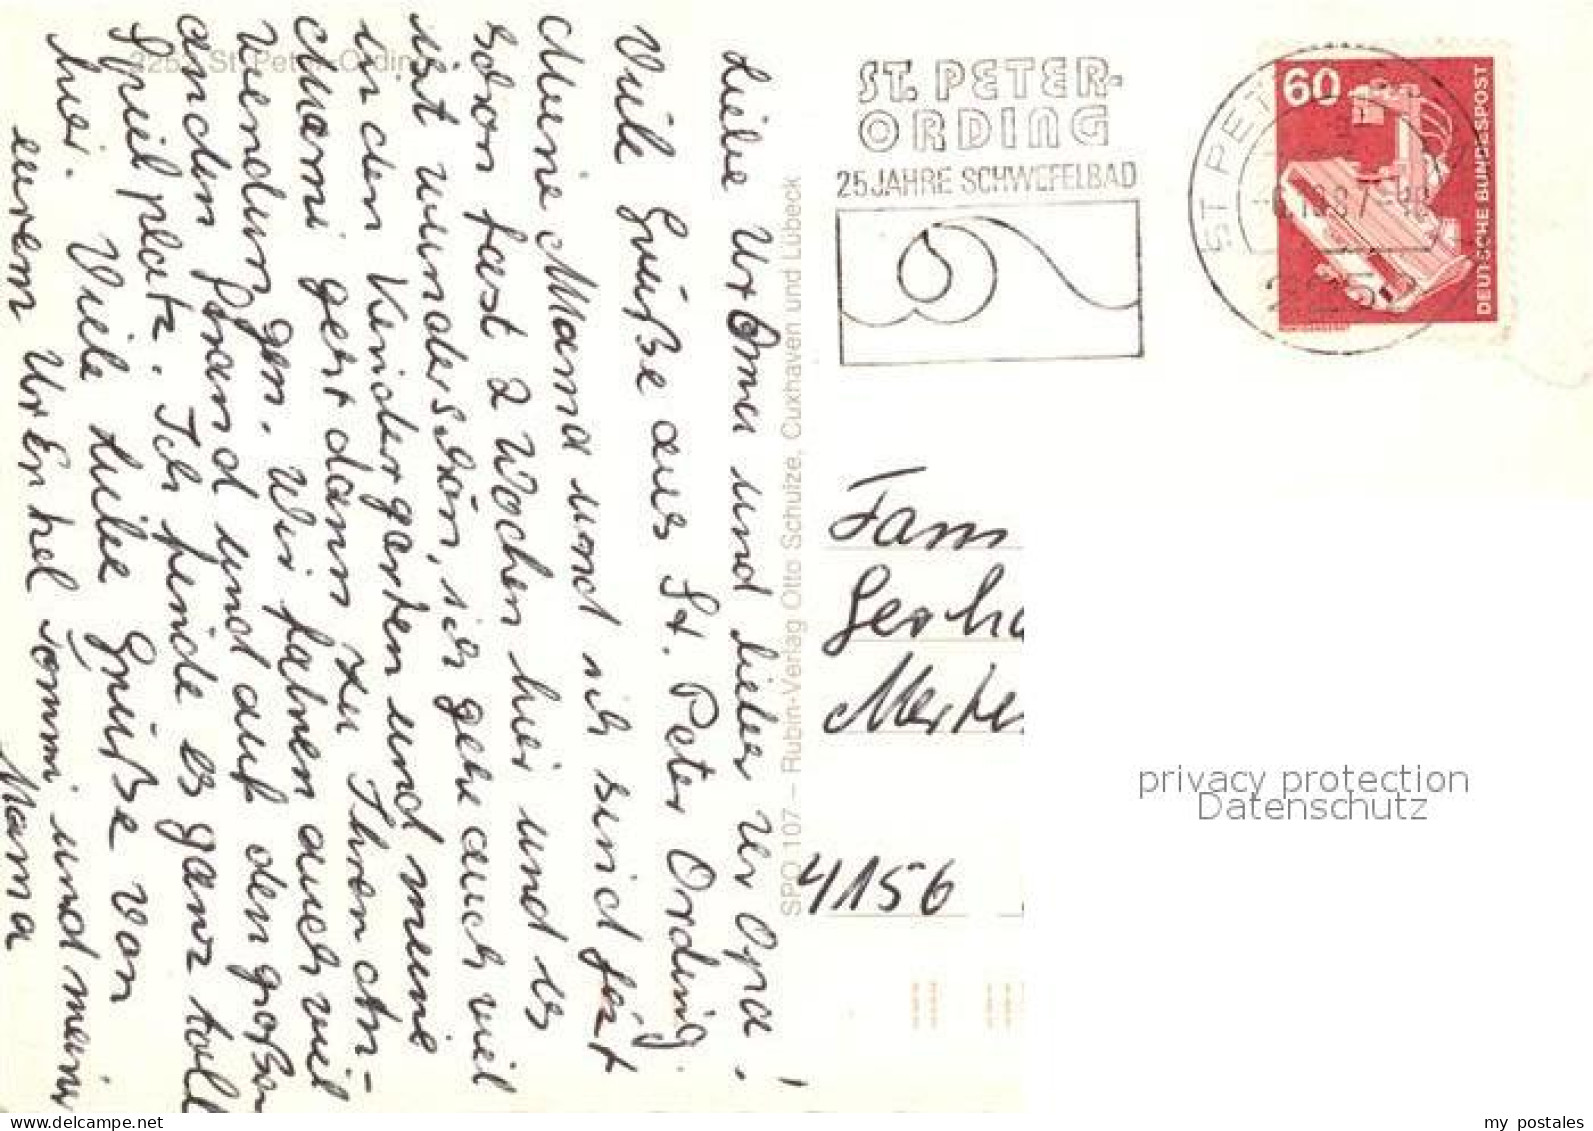 2252 St. Peter-Ording
Liebe UrOmi und lieber Ur Opa!
Viele Grüße aus St. Peter Ording.
Meine Mama und ich sind jetzt
schon fast 2 Wochen hier und es
ist wunderschön, ich gehe auch viel
in den Kindergarten und meine
Mami geht dann zu Ihren An-
wendungen. Wir fahren auch viel
an den Strand und auf den großen
Spielplatz. Ich finde es ganz toll
hier. Viele liebe Grüße von
eurem UrEnkel Tommi und meine
Mama
SPO 107 – Rubin-Verlag Otto Schulze, Cuxhaven und Lübeck
ST. PETER-
ORDING
25 JAHRE SCHWEFELBAD
ST PET
60
DEUTSCHE BUNDESPOST
Fam
Gerha
Merte
4156
privacy protection
Datenschutz
my postales